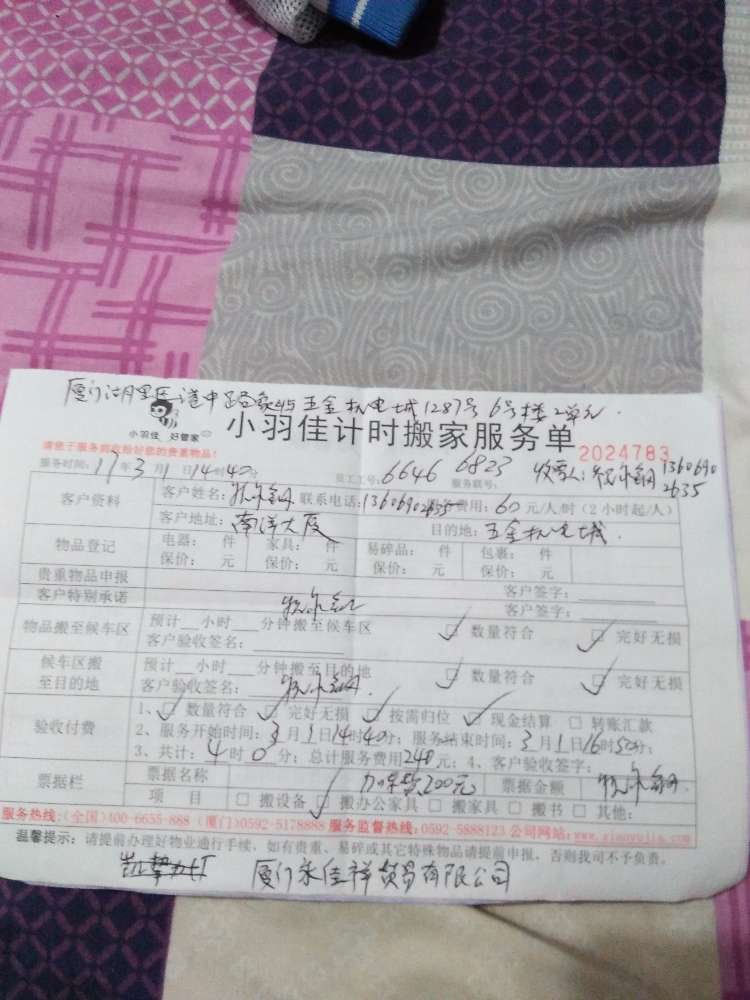 厦门湖里区道中路象屿五金机电城1287号6号楼2单元.
小羽佳 好管家
小羽佳计时搬家服务单
2024783
请您于服务前收拾好您的贵重物品!
服务时间: 17年3月1日14时40分 员工工号: 6646 6823 服务联号: 收票人: 13606902635
客户资料 客户姓名: 联系电话: 13606902635 服务费用: 60元/人/时(2小时起/人)
客户地址: 南洋大厦 目的地: 五金机电城.
物品登记 电器: 件 家具: 件 易碎品: 件 包裹: 件
保价: 元 保价: 元 保价: 元 保价: 元
贵重物品申报 客户签字:
客户特别承诺 客户签字:
物品搬至候车区 预计__小时__分钟搬至候车区 数量符合 完好无损
客户验收签名:
候车区搬至目的地 预计__小时__分钟搬至目的地 数量符合 完好无损
客户验收签名:
验收付费 1、数量符合 完好无损 按需归位 现金结算 转账汇款
2、服务开始时间: 3月1日14时40分; 服务结束时间: 3月1日16时50分;
3、共计: 4时0分; 总计服务费用240元; 4、客户验收签字:
票据栏 票据名称 加保费200元 票据金额
项 目 搬设备 搬办公家具 搬家具 搬书 其他:
服务热线:(全国)400-6655-888 (厦门)0592-5178888 服务监督热线:0592-5888123 公司网站:www.xiaoyujia.com
温馨提示: 请提前办理好物业通行手续, 如有贵重、易碎或其它特殊物品请提前申报, 否则我司不予负责。
厦门永佳祥贸易有限公司